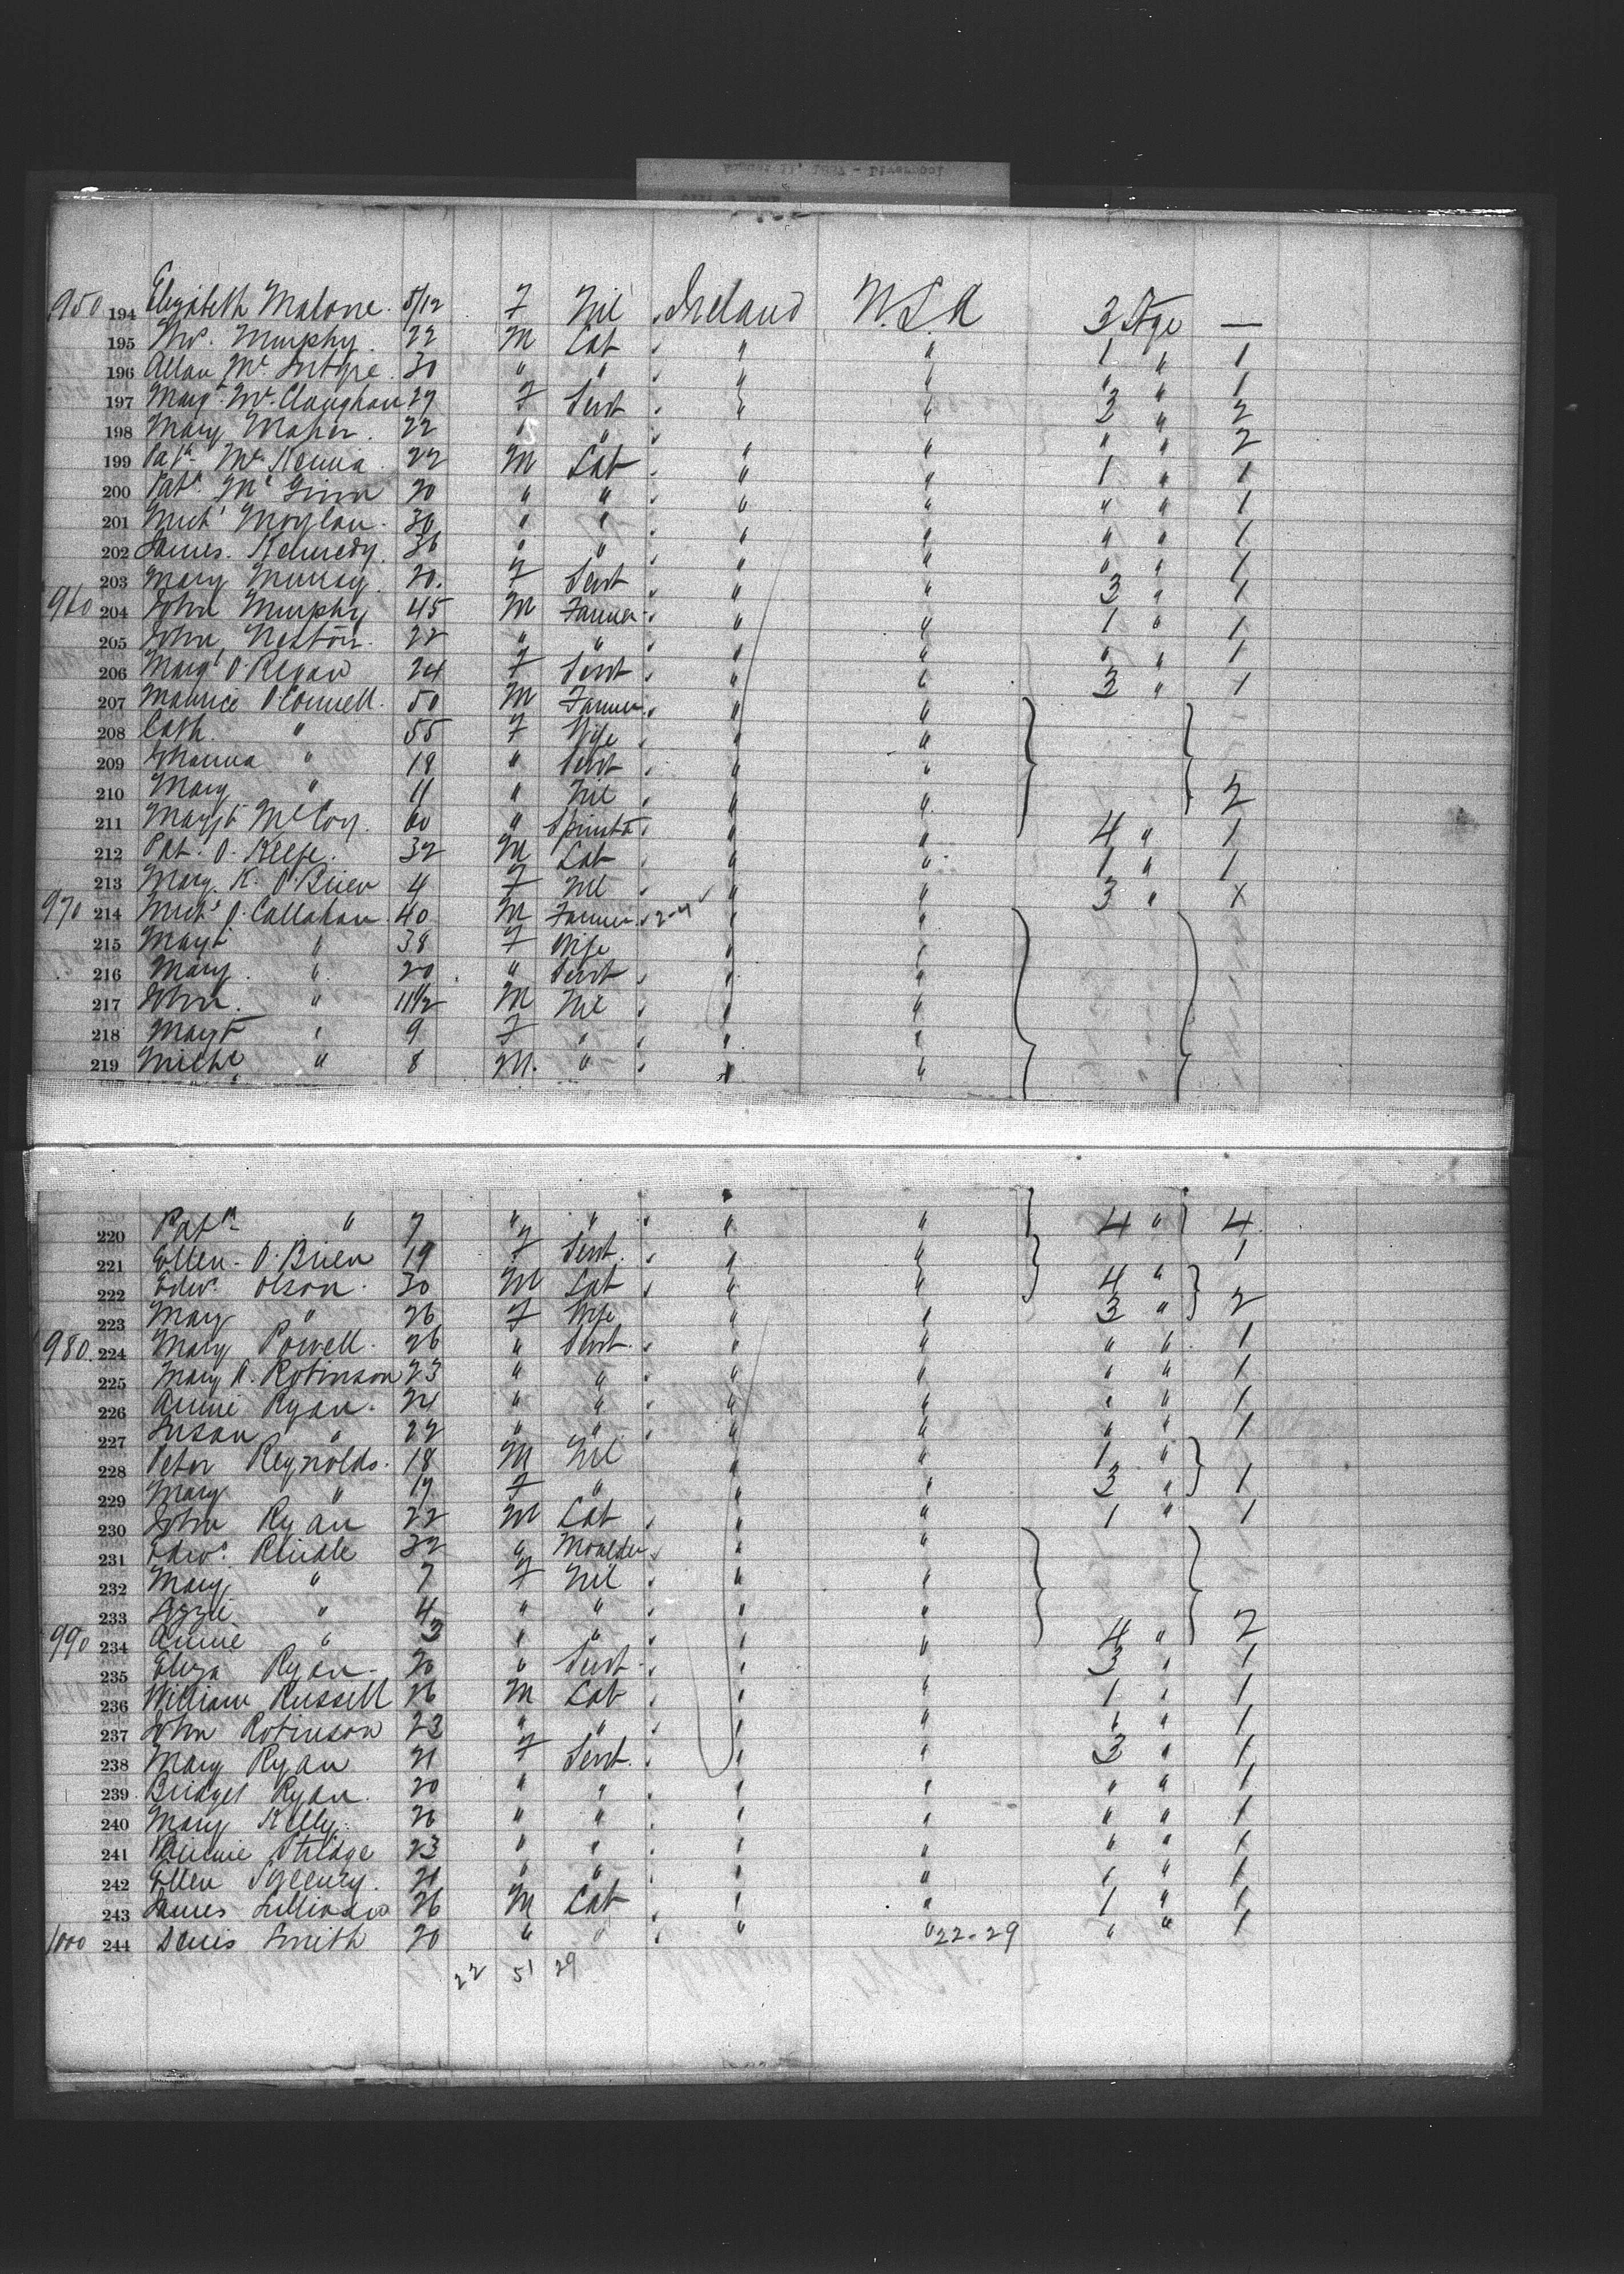 950 194 Elizabeth Malone. 5/12 F Nil Ireland U.S.A 3 Stge —
195 Murphy. 22 M Lab " " 1 " 1
196 Allan Mc Intyre. 30 " " " " " " 1
197 Margt Mc. Claughan 29 F Servt " " 3 " 2
198 Mary Maher. 22 " " " " " " 2
199 Patk Mc Kenna 22 M Lab " " 1 " 1
200 Patk Mc Ginn 20 " " " " " " 1
201 Michl Moylan. 30 " " " " " " 1
202 James. Kennedy. 36 " " " " " " 1
203 Mary Murray 20. F Servt " " 3 " 1
960 204 John Murphy 45 M Farmer " " 1 " 1
205 John 22 " " " " " " 1
206 Margt O'Regan 24 F Servt " " 3 " 1
207 Maurice O'Connell. 50 M Farmer " "
208 Cath. " 55 F Wife " "
209 Johanna " 18 " Servt " "
210 Mary " 11 " Nil " " 2
211 Margt McCoy. 60 " Spinstr " " 4 " 1
212 Pat. O. Keefe. 32 M Lab " " 1 " 1
213 Mary K. O'Brien 4 F Nil " " 3 "
970 214 Michl O. Callahan 40 M Farmer " "
215 Margt " 38 F Wife " "
216 Mary. " 20 " Servt " "
217 John. " 11 1/2 M Nil " "
218 Margt " 9 F " " "
219 Michl " 8 M. " " "
220 Patk " 7 " " " " 4 " 4
221 Ellen. O. Brien 19 F Servt. " " 1
222 Edwd Olson. 30 M Lab " " 4 "
223 Mary " 26 F Wife " " 3 " 2
980. 224 Mary Powell. 26 " Servt. " " " " 1
225 Mary A. Robinson 23 " " " " " " 1
226 Annie Ryan. 24 " " " " " " 1
227 Susan " 22 " " " " " " 1
228 Peter Reynolds. 18 M Nil " " 1 "
229 Mary " 17 F " " " 3 " 1
230 John Ryan 22 M Lab " " 1 " 1
231 Edwd 32 " Moulder " "
232 Mary " 7 F Nil " "
233 " 4 " " " "
990 234 Annie " 3 " " " " 4 " 2
235 Eliza Ryan. 20 " Servt " " 3 " 1
236 William Russell 26 M Lab " " 1 " 1
237 John Robinson 23 " " " " " " 1
238 Mary Ryan 21 F Servt. " " 3 " 1
239 Bridget Ryan. 20 " " " " " " 1
240 Mary Kelly. 26 " " " " " " 1
241 23 " " " " " " 1
242 Ellen 21 " " " " " " 1
243 James 26 M Lab " " 1 " 1
1000 244 Smith 20 " " " " 22-29 " " 1
22 51 29